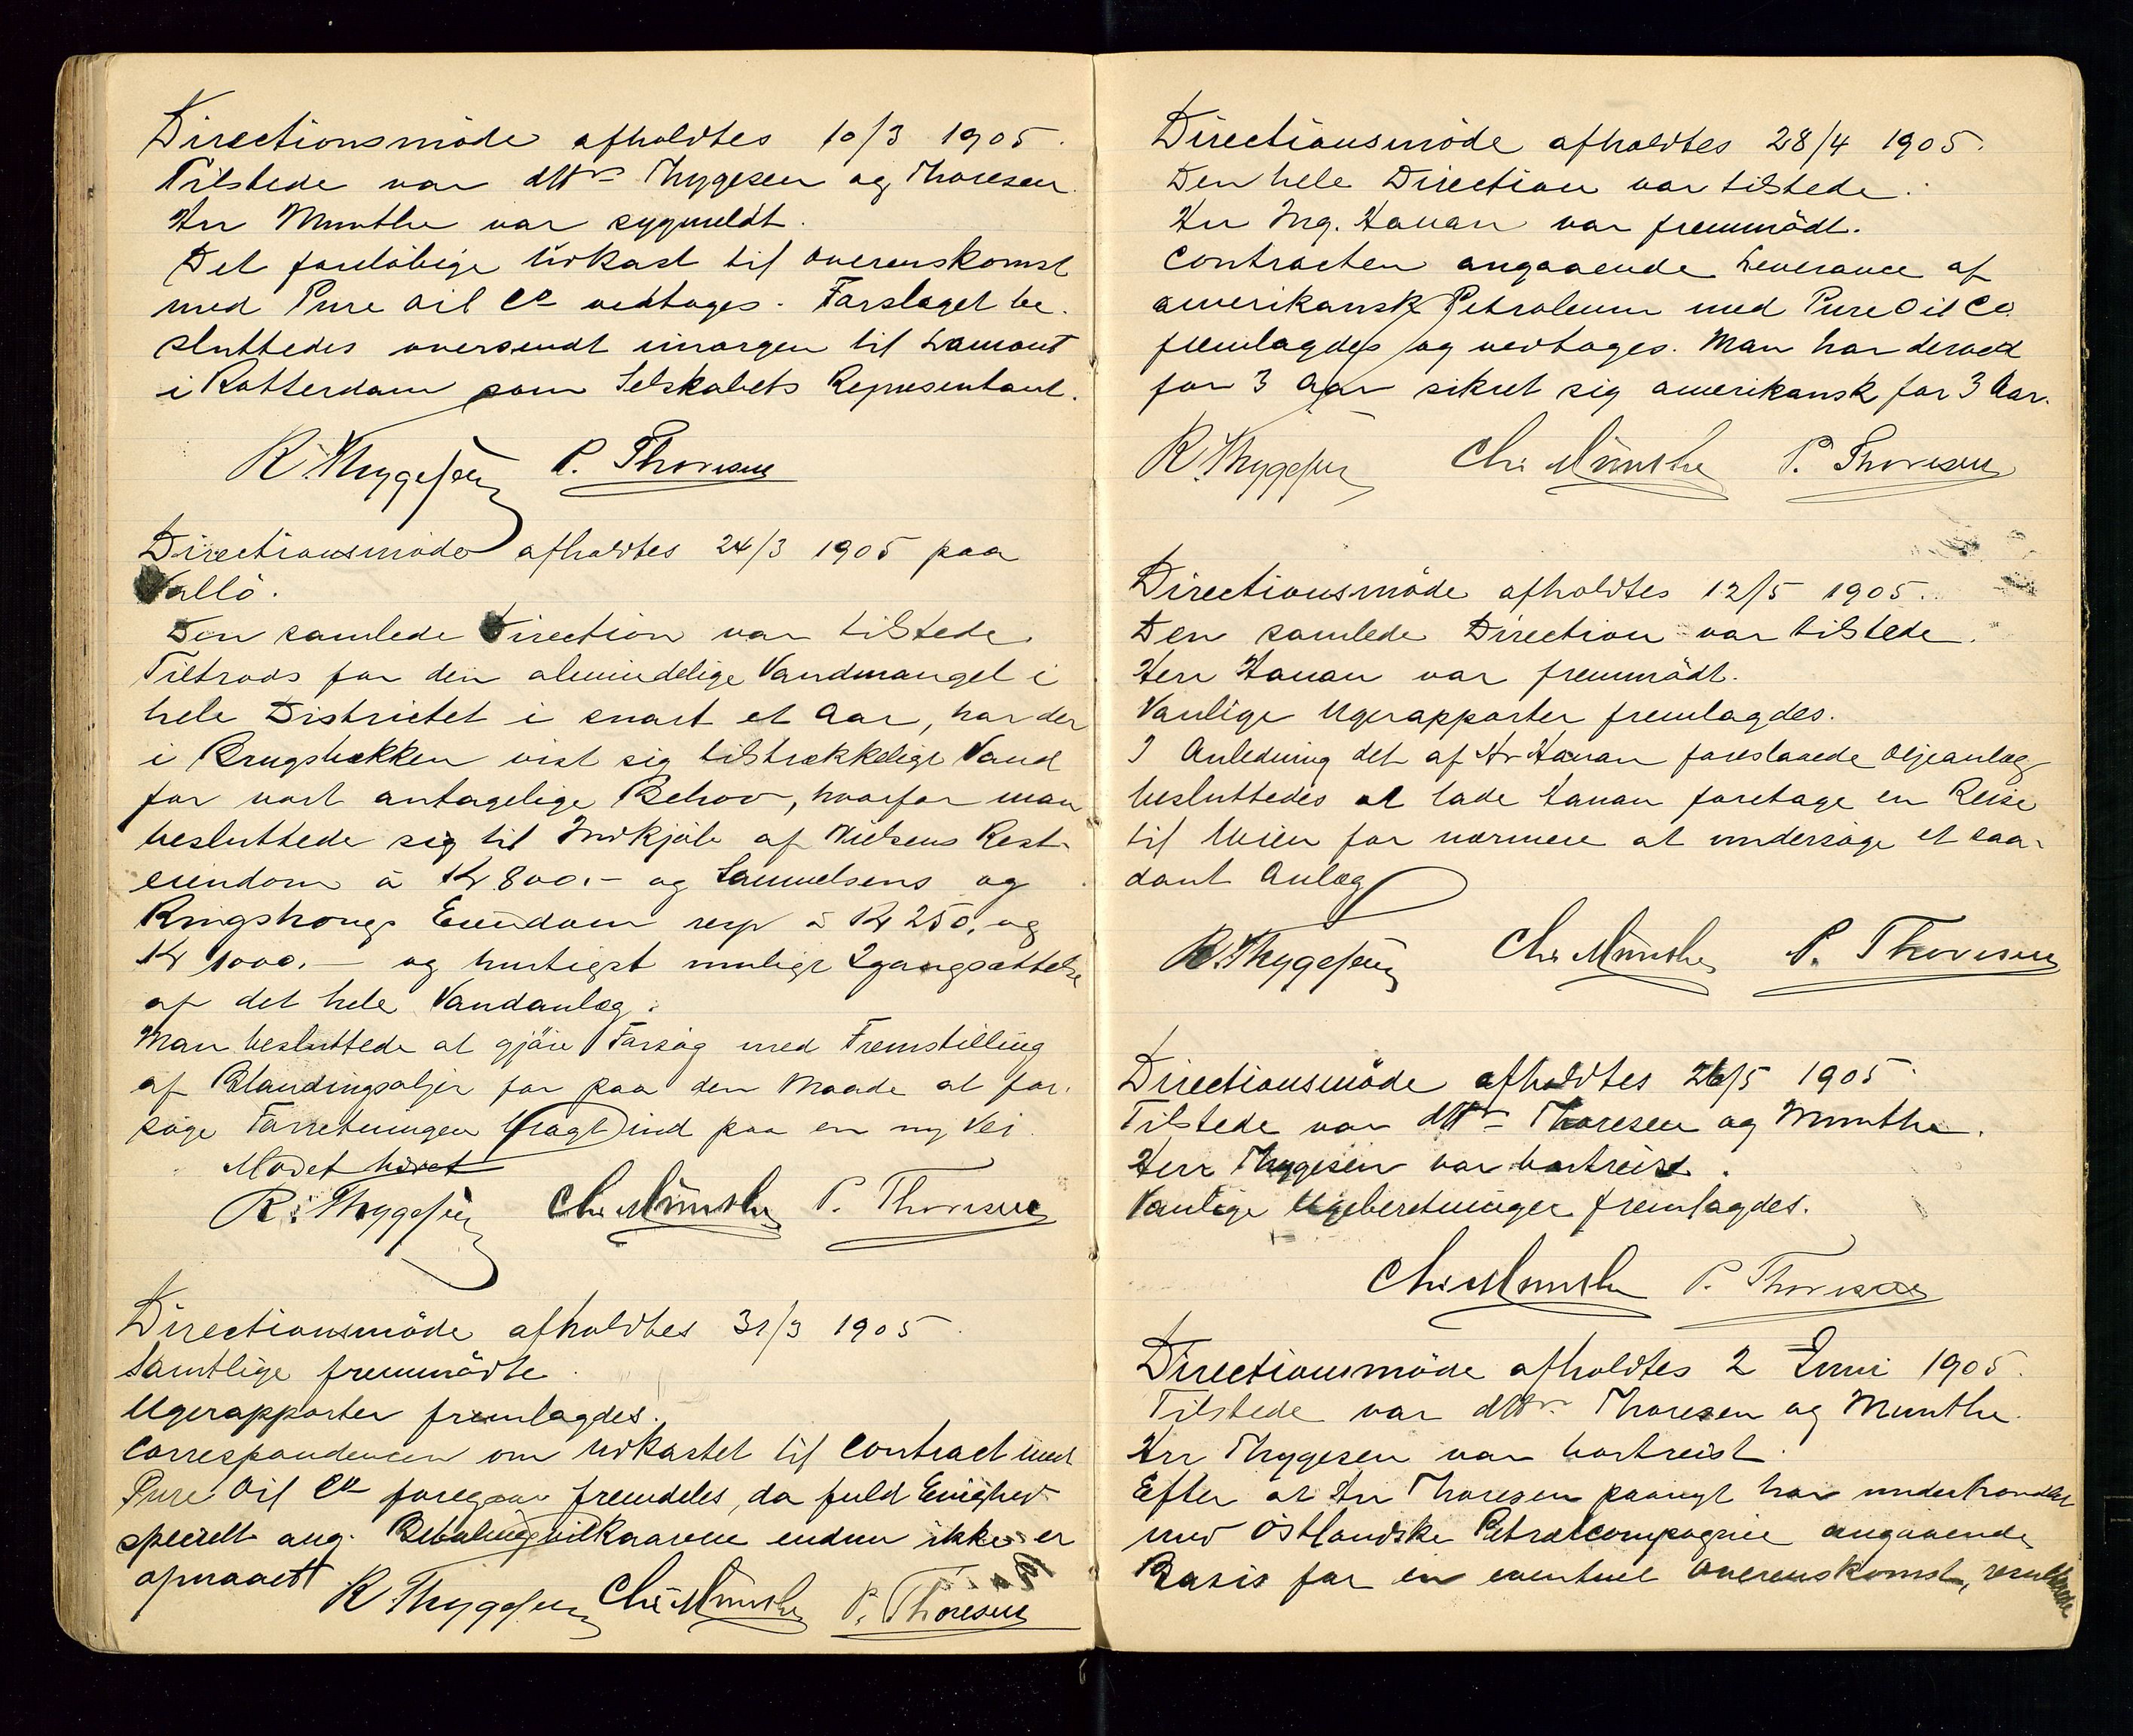 Directionsmöde afholdtes 10/3 1905.
Tilstede var dHr Thygesen og Thoresen.
Hr Munthe var sygmeldt.
Det foreløbige Udkast til Overenskomst
med Pure Oil Co vedtoges. Forslaget be-
sluttedes oversendt imorgen til Lamont
i Rotterdam som Selskabets Representant.
R. Thygesen P. Thoresen
Directionsmöde afholdtes 24/3 1905 paa
Vallö.
Den samlede Direction var tilstede.
Tiltrods for den almindelige Vandmangel i
hele Districtet i snart et Aar, har der
i Brugsbækken vist sig tilstrækkelige Vand
for vort antagelige Behov, hvorfor man
besluttede sig til Indkjöb af Nielsens Rest-
eiendom á Kr 800.- og Samuelsens og
Ringshougs Eiendom resp á Kr 250. og
Kr 1000.- og hurtigst mulige Igangsættelse
af det hele Vandanlæg.
Man besluttede at gjöre Forsög med Fremstilling
af Blandingsoljer for paa den Maade at for-
söge Forretningen bragt ind paa en ny Vei.
Mödet hævet
R. Thygesen Chr Munthe P. Thoresen
Directionsmöde afholdtes 31/3 1905.
Samtlige fremmödte.
Ugerapporter fremlagdes.
Correspondencen om Udkastet til Contract med
Pure Oil Co foregaar fremdeles, da fuld Enighed
specielt ang. Betalingsvilkaarene endnu ikke er
opnaaet
R. Thygesen Chr Munthe P. Thoresen
Directionsmöde afholdtes 28/4 1905.
Den hele Direction var tilstede.
Hr Ing. Hanan var fremmödt.
Contracten angaaende Leverance af
amerikansk Petroleum med Pure Oil Co
fremlagdes og vedtoges. Man har derved
for 3 Aar sikret sig amerikansk for 3 Aar.
R. Thygesen Chr Munthe P. Thoresen
Directionsmöde afholdtes 12/5 1905.
Den samlede Direction var tilstede.
Herr Hanan var fremmödt.
Vanlige Ugerapporter fremlagdes.
I Anledning det af Hr Hanan foreslaaede Oljeanlæg
besluttedes at lade Hanan foretage en Reise
til Wien for nærmere at undersöge et saa-
dant Anlæg
R. Thygesen Chr Munthe P. Thoresen
Directionsmöde afholdtes 26/5 1905.
Tilstede var dHr Thoresen og Munthe.
Herr Thygesen var bortreist.
Vanlige Ugeberetninger fremlagdes.
Chr Munthe P. Thoresen
Directionsmöde afholdtes 2 Juni 1905.
Tilstede var dHr Thoresen og Munthe.
Hr Thygesen var bortreist.
Efter at Hr Thoresen paanyt har underhandlet
med Östlandske Petrolcompagnie angaaende
Basis for en eventuel Overenskomst, resulterede